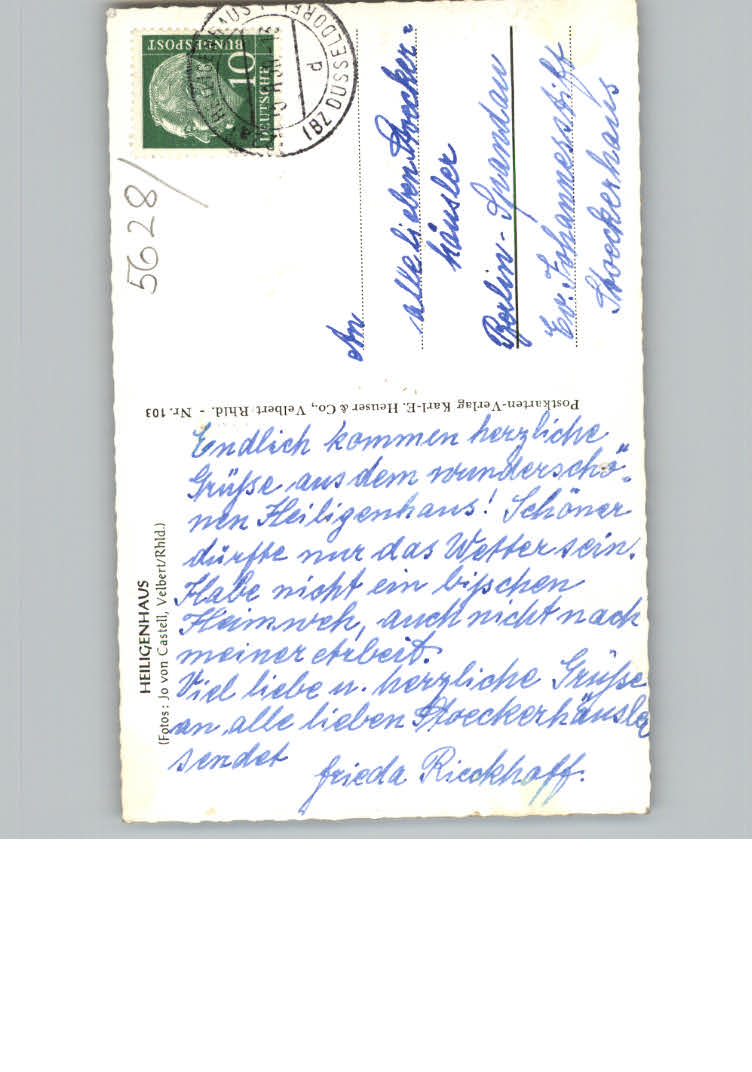 Endlich kommen herzliche
Grüße aus dem wunderschö-
nen Heiligenhaus! Schöner
dürfte nur das Wetter sein.
Habe nicht ein bißchen
Heimweh, auch nicht nach
meiner Arbeit.
Viel liebe u. herzliche Grüße
an alle lieben Stoeckerhäusler
sendet
Frieda Rieckhoff.
HEILIGENHAUS
(Fotos: Jo von Castell, Velbert/Rhld.)
Postkarten-Verlag Karl-E. Heuser & Co., Velbert Rhld. - Nr. 103
5628/
An
alle lieben Stoecker-
häusler
Berlin-Spandau
Ev. Johannesstift
Stoeckerhaus
DEUTSCHE
BUNDESPOST
10
(BZ DÜSSELDORF)